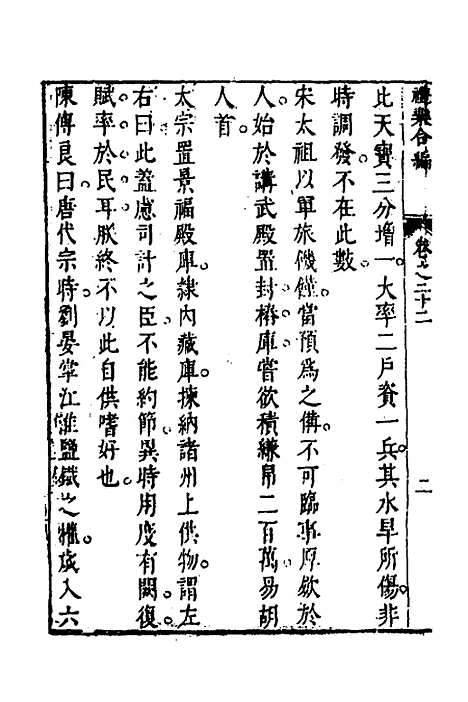 禮樂合編
卷之二十二
二
此天寶三分增一大率二戶資一兵其水旱所傷非
時調發不在此數
宋太祖以軍旅饑饉當預爲之備不可臨事厚歛於
人始於講武殿置封樁庫嘗欲積縑帛二百萬易胡
人首
太宗置景福殿庫隸內藏庫揀納諸州上供物謂左
右曰此蓋慮司計之臣不能約節異時用度有闕復
賦率於民耳朕終不以此自供嗜好也
陳傅良曰唐代宗時劉晏掌江淮鹽鐵之權歲入六